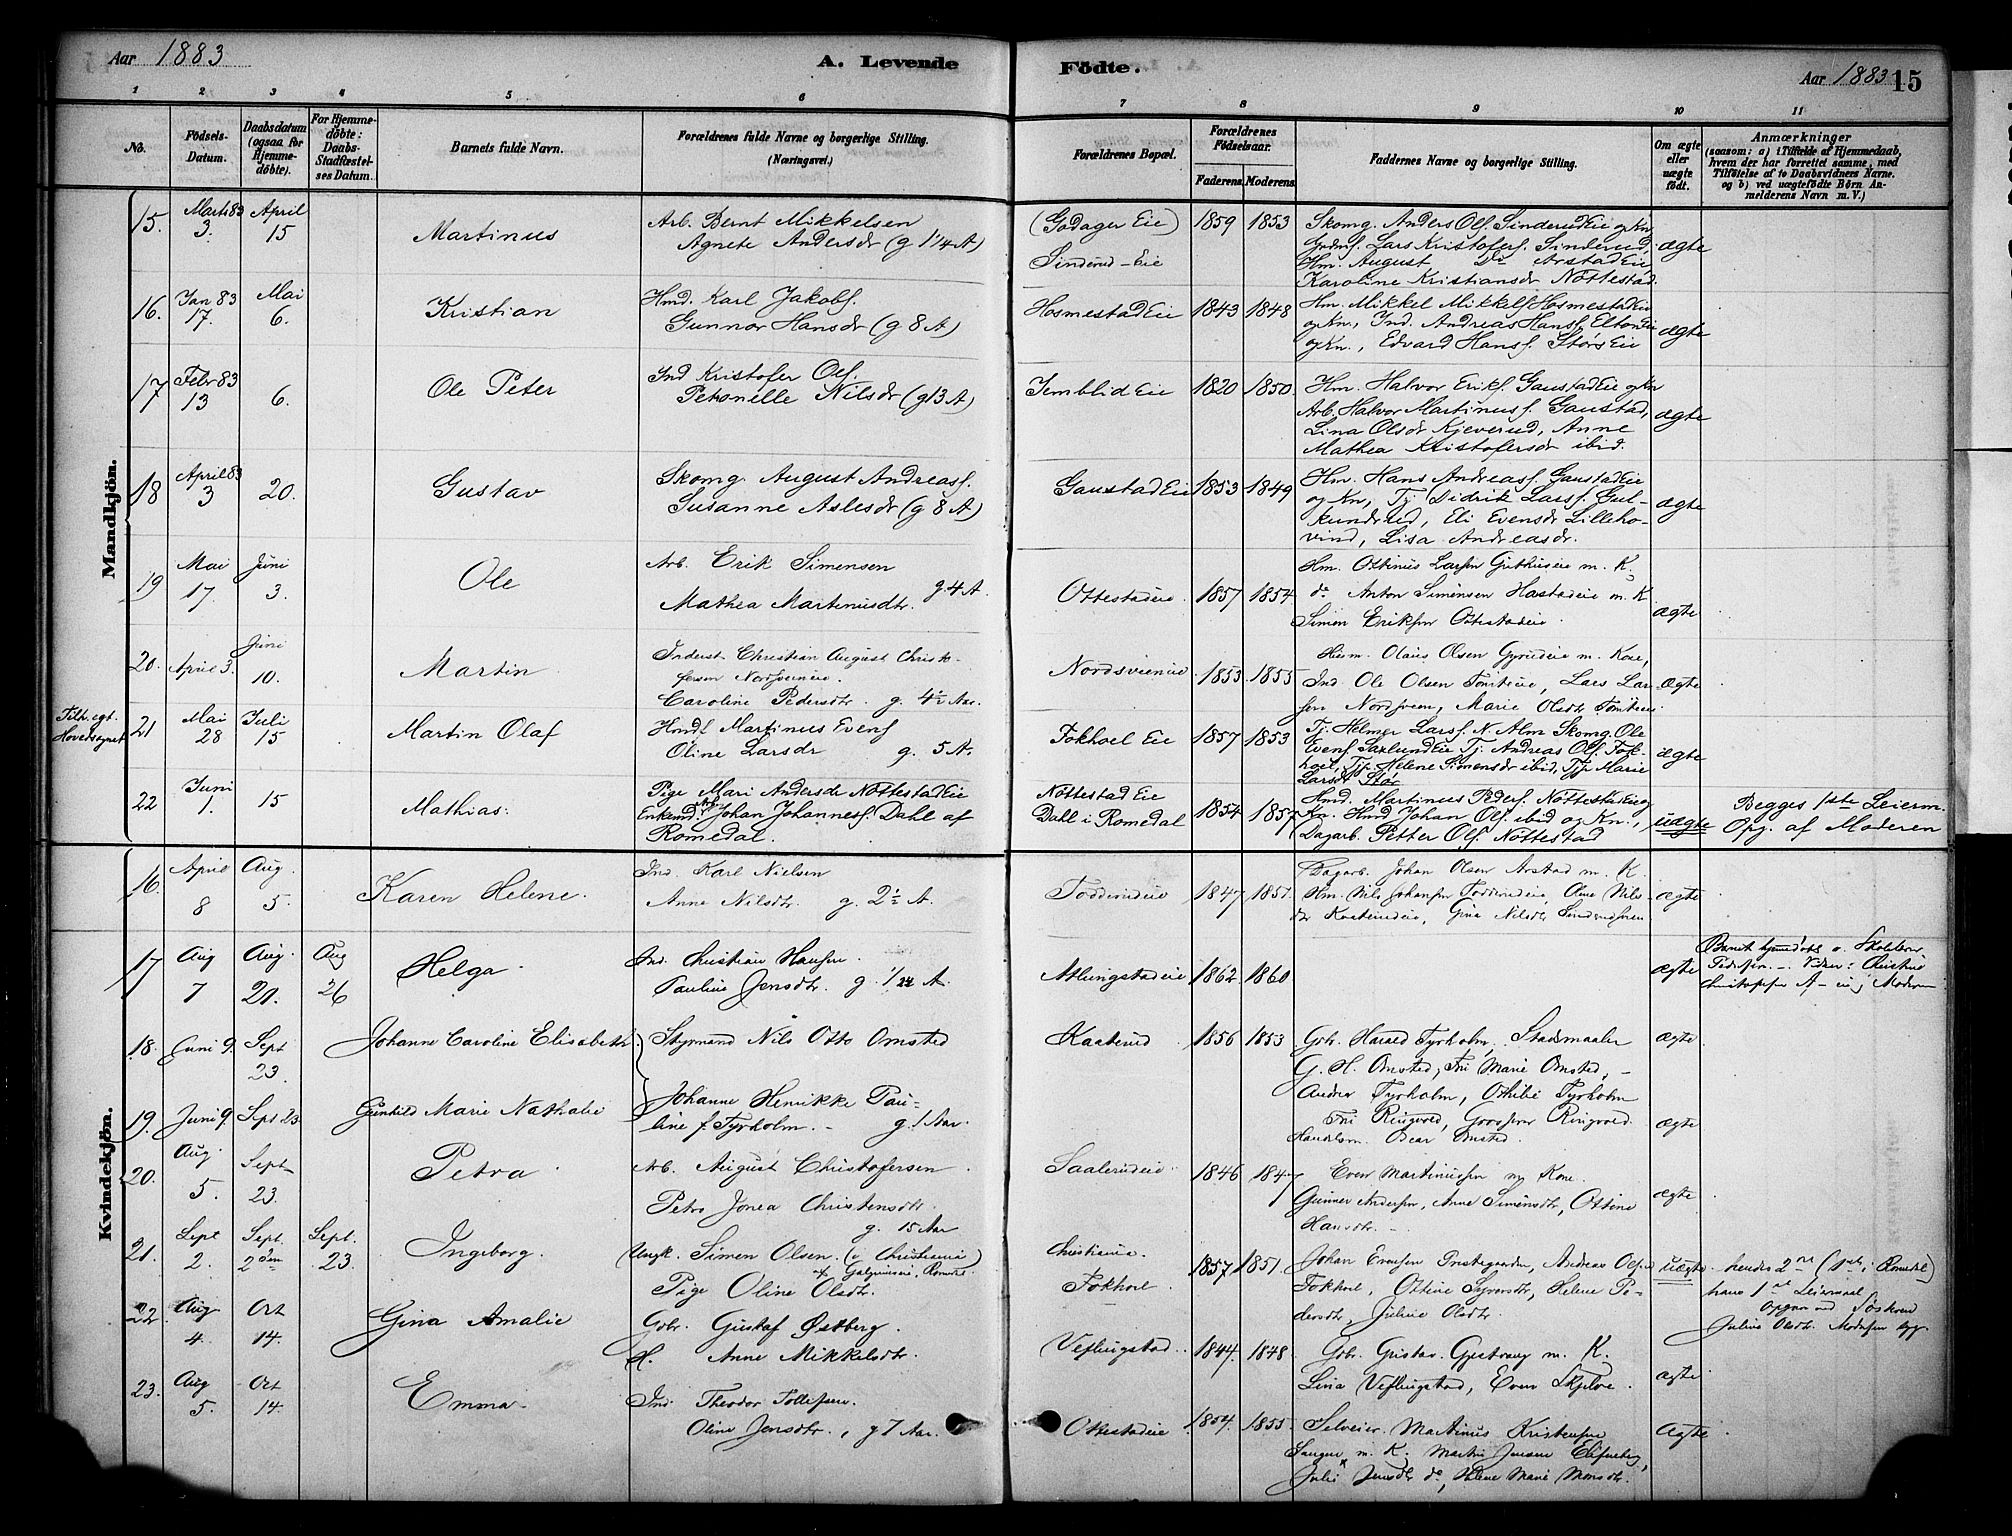 Aar 1883
A. Levende
Födte.
Aar 1883
15
1 2 3 4 5 6 7 8 9 10 11
No.
Födsels-
Datum.
Daabsdatum
(ogsaa for
Hjemme-
döbte).
For Hjemme-
döbte:
Daabs-
Stadfæstel-
ses Datum.
Barnets fulde Navn.
Forældrenes fulde Navne og borgerlige Stilling.
(Næringsvei.)
Forældrenes Bopæl.
Forældrenes
Födselsaar.
Faderens. Moderens.
Faddernes Navne og borgerlige Stilling.
Om ægte
eller
uægte
födt.
Anmærkninger
(saasom: a) i Tilfælde af Hjemmedaab,
hvem der har forrettet samme, med
Tilföielse af to Daabsvidners Navne.
og b) ved uægtefödte Börn An-
melderens Navn m. V.)
Mandkjön.
15. Marts 83 3. April 15 Martinus
Arb. Bernt Mikkelsen
Agnete Andersdr (g 1 1/4 A)
(Godager Eie)
Sinderud-Eie
1859 1853
Skomg. Anders Olf. Sinderud Eie og Kn
Lars Kristofers. Sinderud,
Hm. August do Arstad Eie
Karoline Kristiansdr Nöttestad.
ægte
16. Jan 83 17. Mai 6. Kristian
Hmd. Karl Jakobs.
Gunnor Hansdr (g 8 A)
Hosmestad Eie
1843 1848
Hm. Mikkel Mikkels. Hosmestad Eie
og Kn., Ind. Andreas Hans. Elton Eie
og Kn., Edvard Hans. Störs Eie
ægte
17 Febr 83 13 6. Ole Peter
Ind Kristofer Ols.
Petronelle Nilsdr (g 13 A)
Jemblid Eie
1820 1850.
Hm. Halvor Eriks. Gaustad Eie og Kn
Arb. Halvor Martinus. Gaustad,
Lina Olsdr Kjeverud, Anne
Mathea Kristofersdr ibid.
ægte
18 April 83 3 20. Gustav
Skomg August Andreass.
Susanne Aslesdr (g 8 A)
Gaustad Eie
1853 1849
Hm. Hans Andreass. Gaustad Eie
og Kn, Tj. Didrik Lars. Gul-
kundrud, Eli Evensdr Lilleho-
vind, Lisa Andreasdr.
ægte
19 Mai 17. Juni 3. Ole
Arb. Erik Simensen
Mathea Martinusdtr. g. 4 A.
Ottestadeie.
1857 1854
Hm. Ottinus Larsen Guthuseie m. K,
do Anton Simensen Hastadeie m. K
Simen Eriksen Ottestadeie.
ægte
20. April 3. Juni 10. Martin
Inderst Christian August Christo-
fersen Nordsveneie.
Caroline Pedersdtr. g. 4 1/2 Aar.
Nordsveneie
1853 1855
Husm. Olaus Olsen Gyrudeie m. Kone,
Ind. Ole Olsen Tomteeie, Lars Lar-
sen Nordsveen, Marie Olsdtr Tomteeie
ægte
Tilh. egt.
Hovedsognet
21 Mai 28 Juli 15 Martin Olaf
Hmdf Martinus Evens
Oline Larsdr g. 5 A.
Fokhoel Eie
1857 1853
Tj. Helmer Lars. N. Alm Skomg. Ole
Evens. Saxlund Eie Tj. Andreas Ols. Fok-
hoel, Tjp Helene Simensdr ibid, Tjp Marie
Larsdr Stör
ægte
22 Juni 1. 15 Mathias.
Pige Mari Andersdr Nöttestad Eie
Enkemd. Arb Johan Johannes. Dahl af
Romedal.
Nöttestad Eie
Dahl i Romedal
1854 1857
Hmd. Martinus Peders. Nöttestad Eie og
Kn. Hmd Johan Ols. ibid og Kn.,
Dagarb. Petter Ols. Nöttestad
uægte
Begges 1ste Leierm.
Opg. af Moderen
Kvindekjön.
16. April 8 Aug. 5. Karen Helene.
Ind. Karl Nielsen
Anne Nilsdtr. g. 2 1/2 A.
Todderudeie
1847 1851.
Dagarb. Johan Olsen Arstad m. K.
Hm. Nils Johansen Todderudeie, Oline Nils-
dtr Kaaterudeie, Gina Nilsdtr
ægte
17 Aug 7 Aug. 20. Aug 26 Helga.
Ind. Christian Hansen.
Pauline Jensdtr. g. 1/24 A.
Atlungstadeie
1862 1860
ægte
Barnet hjemmedöbt v. Skolelærer
Pedersen. - Vidner:
Moderen
18. Juni 9. Sept 23. Johanne Caroline Elisabeth.
Styrmand Nils Otto Omsted
Kaaterud
1856 1853
Gbr. Harald Tyrholm, Stadsmaaler
G. H. Omsted, Frk Marie Omsted, -
Andrea Tyrholm, Othilie Tyrholm
ægte
19. Juni 9. Sept 23. Gunhild Marie Nathalie
Johanne Henrikke Pau-
line f. Tyrholm. - g. 1 Aar.
Fri Ringvold, Ringvold
Handelsm. Omsted.
ægte
20. Aug. 5. Sept 23. Petra
Arb. August Christofersen
Petra Jonea Christensdtr.
g. 15 Aar
Saalerudeie.
1846 1847
Even Martinussen m Kone.
Gunner Andersen, Anne Simensdtr, Ottine
Hansdtr. -
ægte
21. Sept 2. Sept. 2den Sept. 23. Ingeborg.
Ungk. Simen Olsen. (i Christiania)
Pige Oline Olsdtr.
Christiania.
Fokhoel
1857 1851.
Johan Evensen Prestegaarden, Andreas Olsen
Fokhoel, Ottine Syversdtr, Helene Pe-
dersdtr, Juline Olsdtr.
uægte
hendes 2det (1ste i Romedal)
hans 1st Leiermaal
Opgivn ved Söskend
Juline Olsdtr. Moderen
22. Aug 4. Oct 14. Gina Amalie
Gbr. Gustaf Östberg.
H. Anne Mikkelsdtr.
Veflingstad.
1844. 1848.
Gbr. Gustav m. K.
Lina Veflingstad, Even Skjelve.
ægte
23. Aug 5. Oct 14. Emma.
Ind. Theodor Tollefsen.
Oline Jensdtr., g 7 Aar.
Ottestadeie
1854. 1855.
Selveier Martinus Kristensen
m. K. Martin Jensen
Julie Jensdtr do, Helene Marie Monsdtr.
ægte